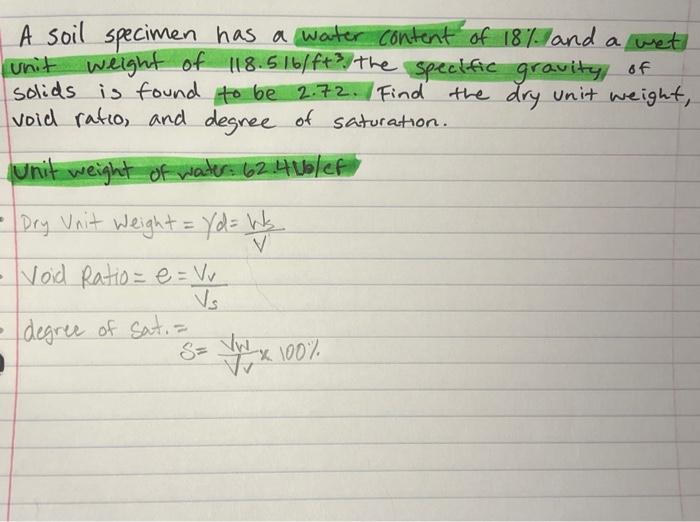 A soil specimen has a water content of 18% and a wet
unit weight of 118.5 lb/ft³. the specific gravity of
solids is found to be 2.72. Find the dry unit weight,
void ratio, and degree of saturation.
Unit weight of water: 62.4 lb/cf
• Dry Unit Weight = γd = Ws/V
• Void Ratio = e = Vv/Vs
• degree of sat. =
S = Vw/Vv x 100%